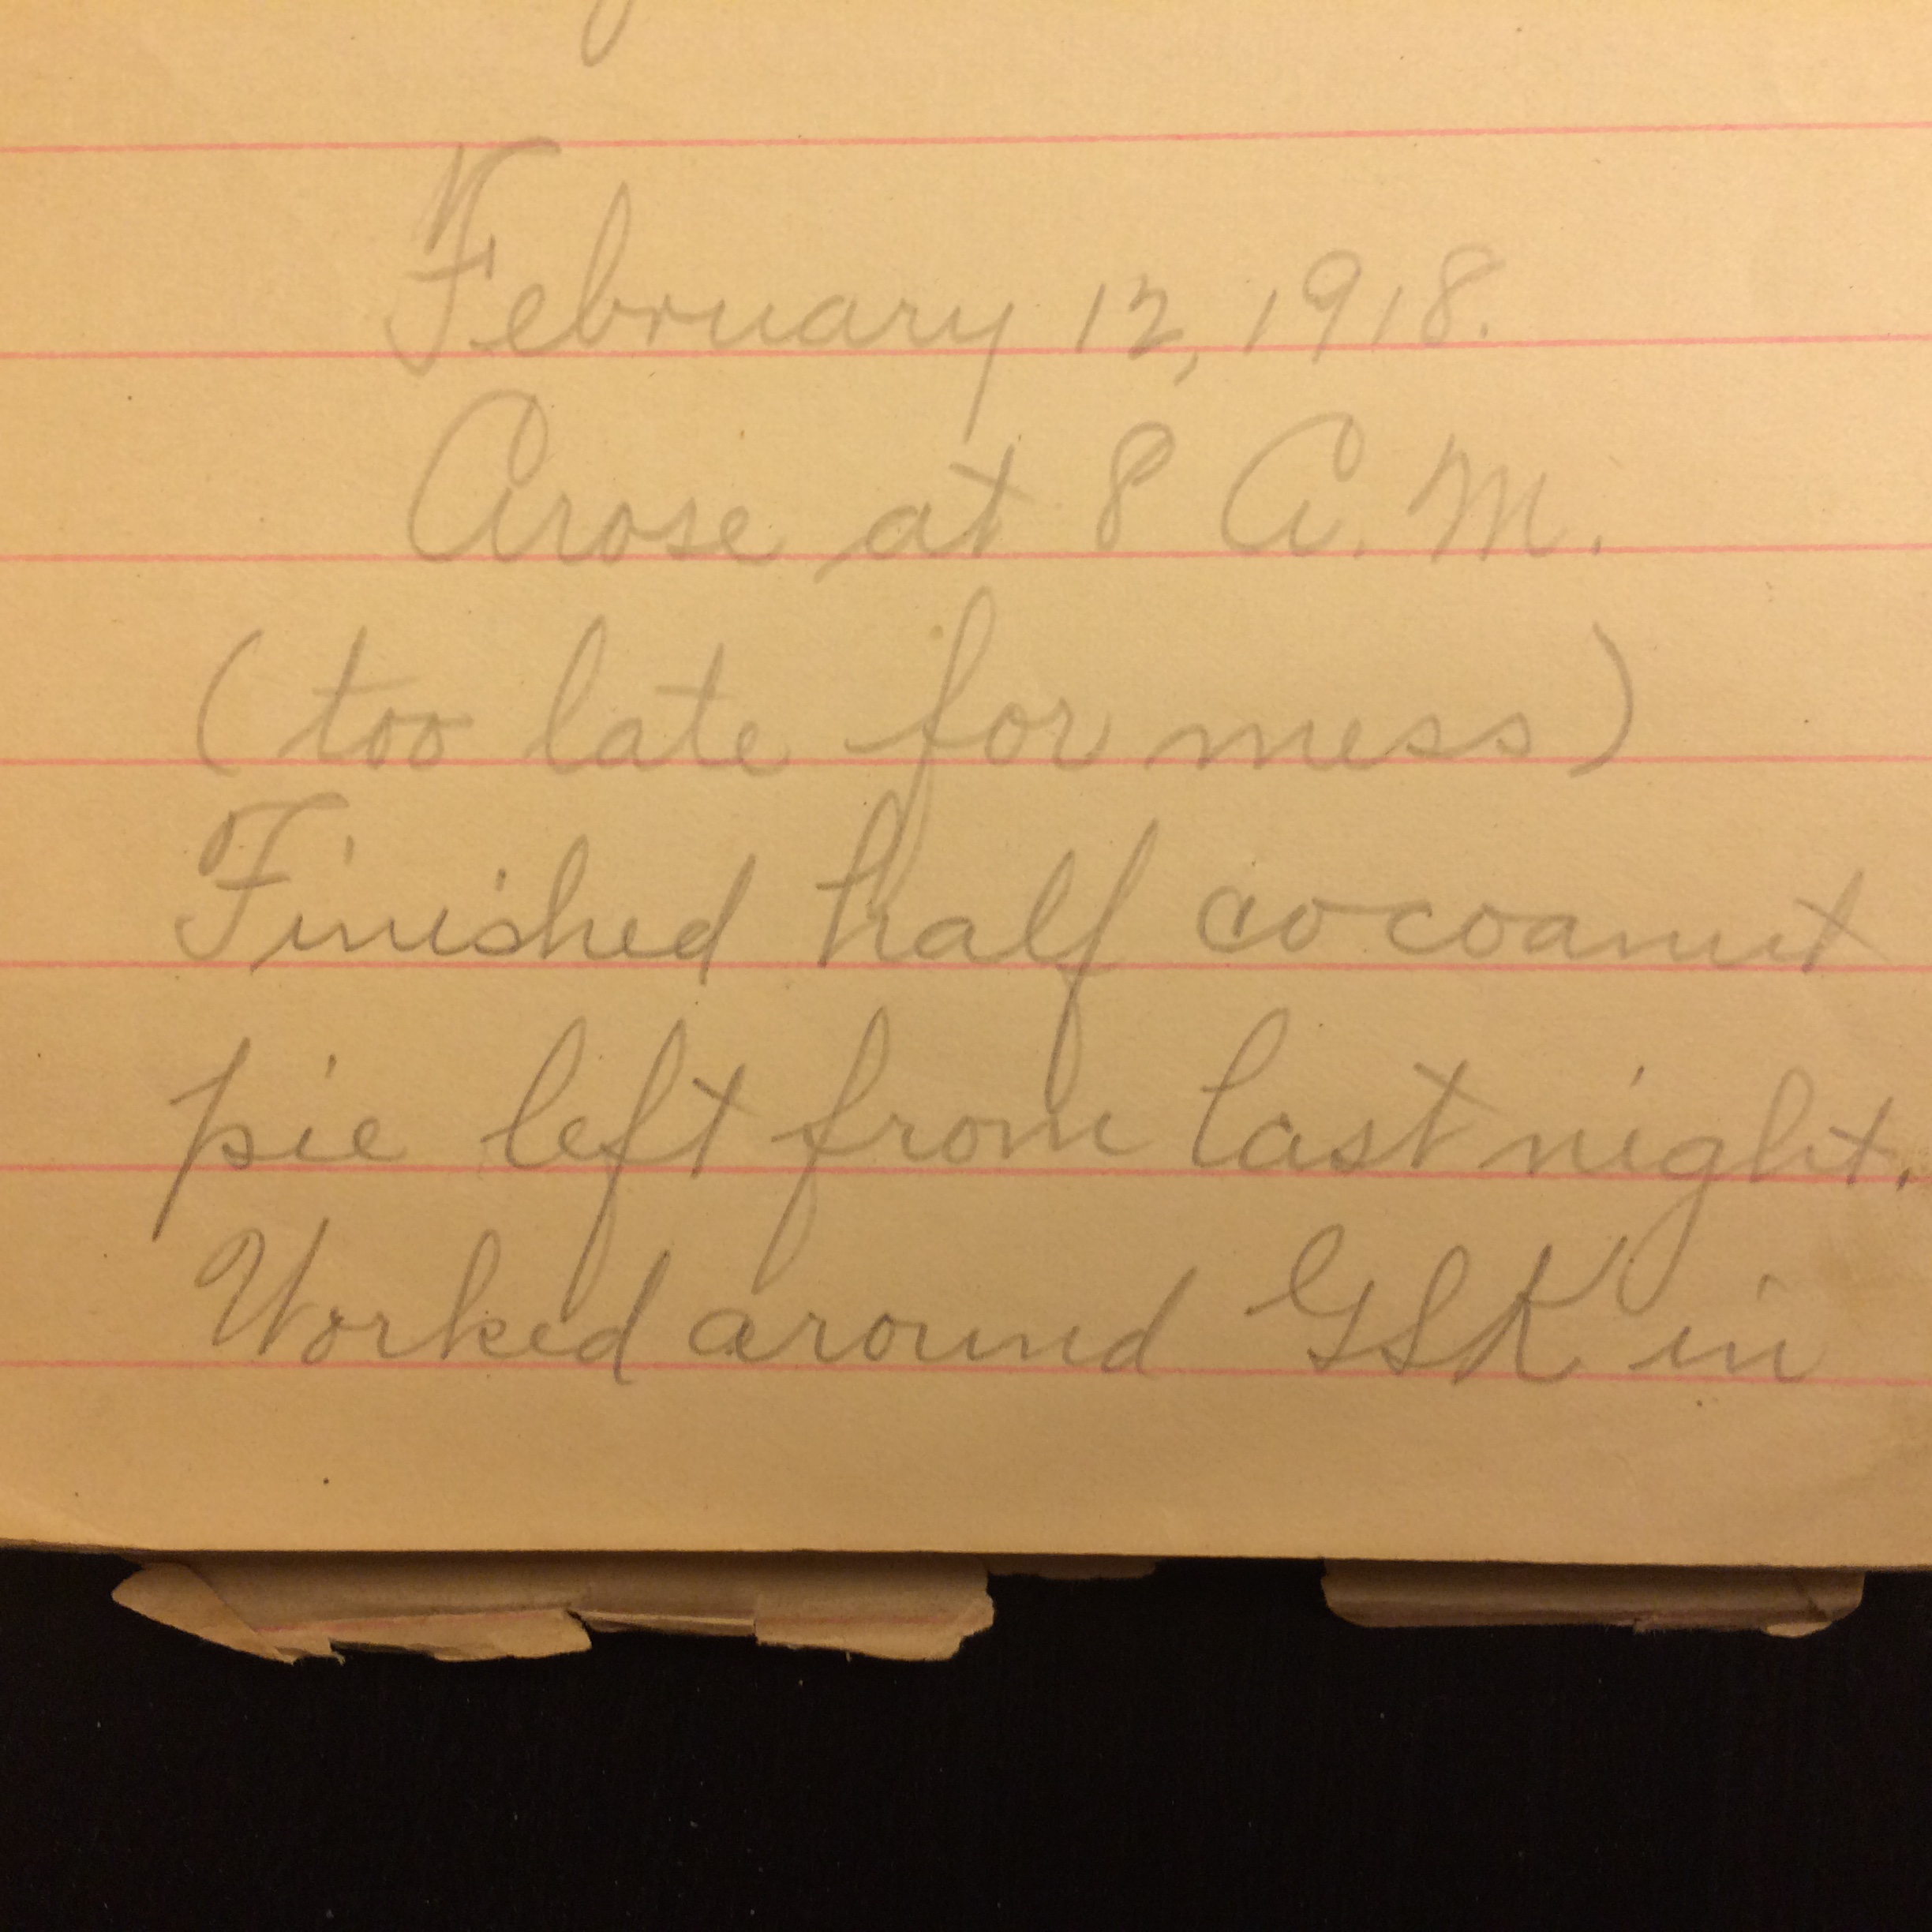 February 12, 1918.
Arose at 8 A.M.
(too late for mess)
Finished half cocoanut
pie left from last night.
Worked around GSK in